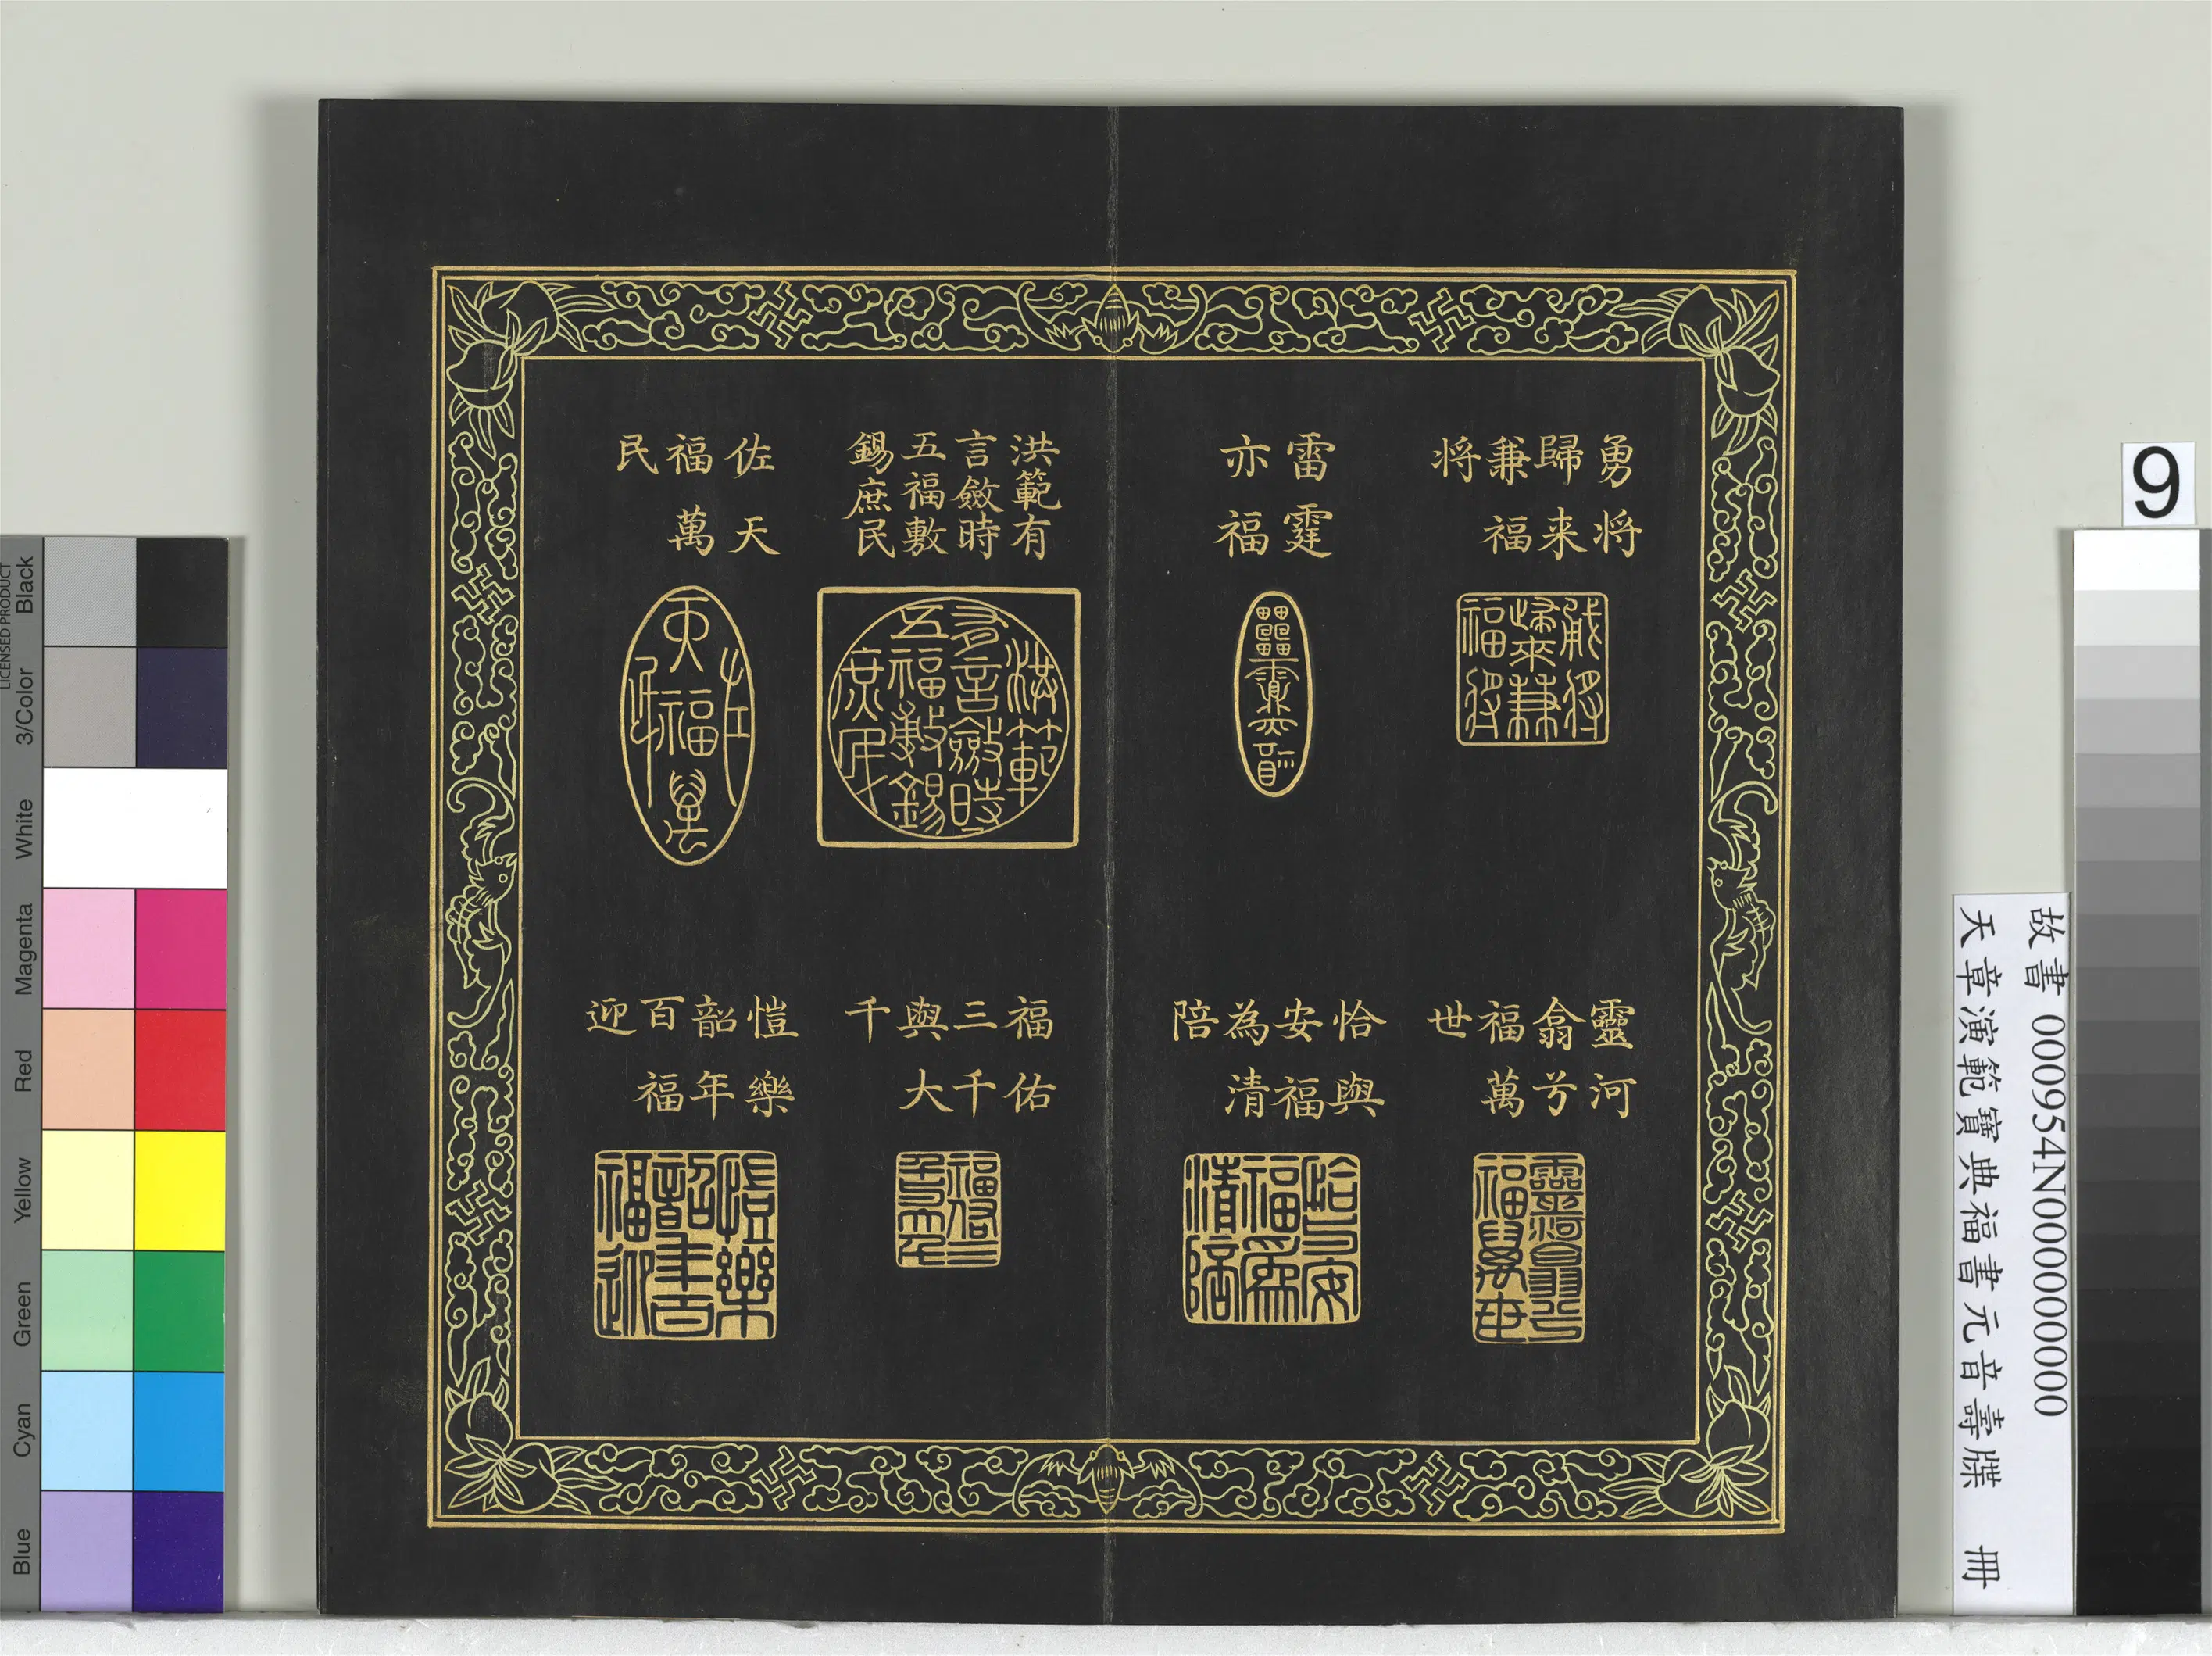 勇将
歸来
兼福
将
雷霆
亦福
洪範有
言斂時
五福敷
錫庶民
佐天
福萬
民
靈河
翕兮
福萬
世
恰與
安福
為清
陪
福佑
三千
與大
千
愷樂
韶年
百福
迎
故書 000954N000000000
天章演範寶典福書元音壽牒 冊
9
LICENSED PRODUCT
Black
3/Color
White
Magenta
Red
Yellow
Green
Cyan
Blue